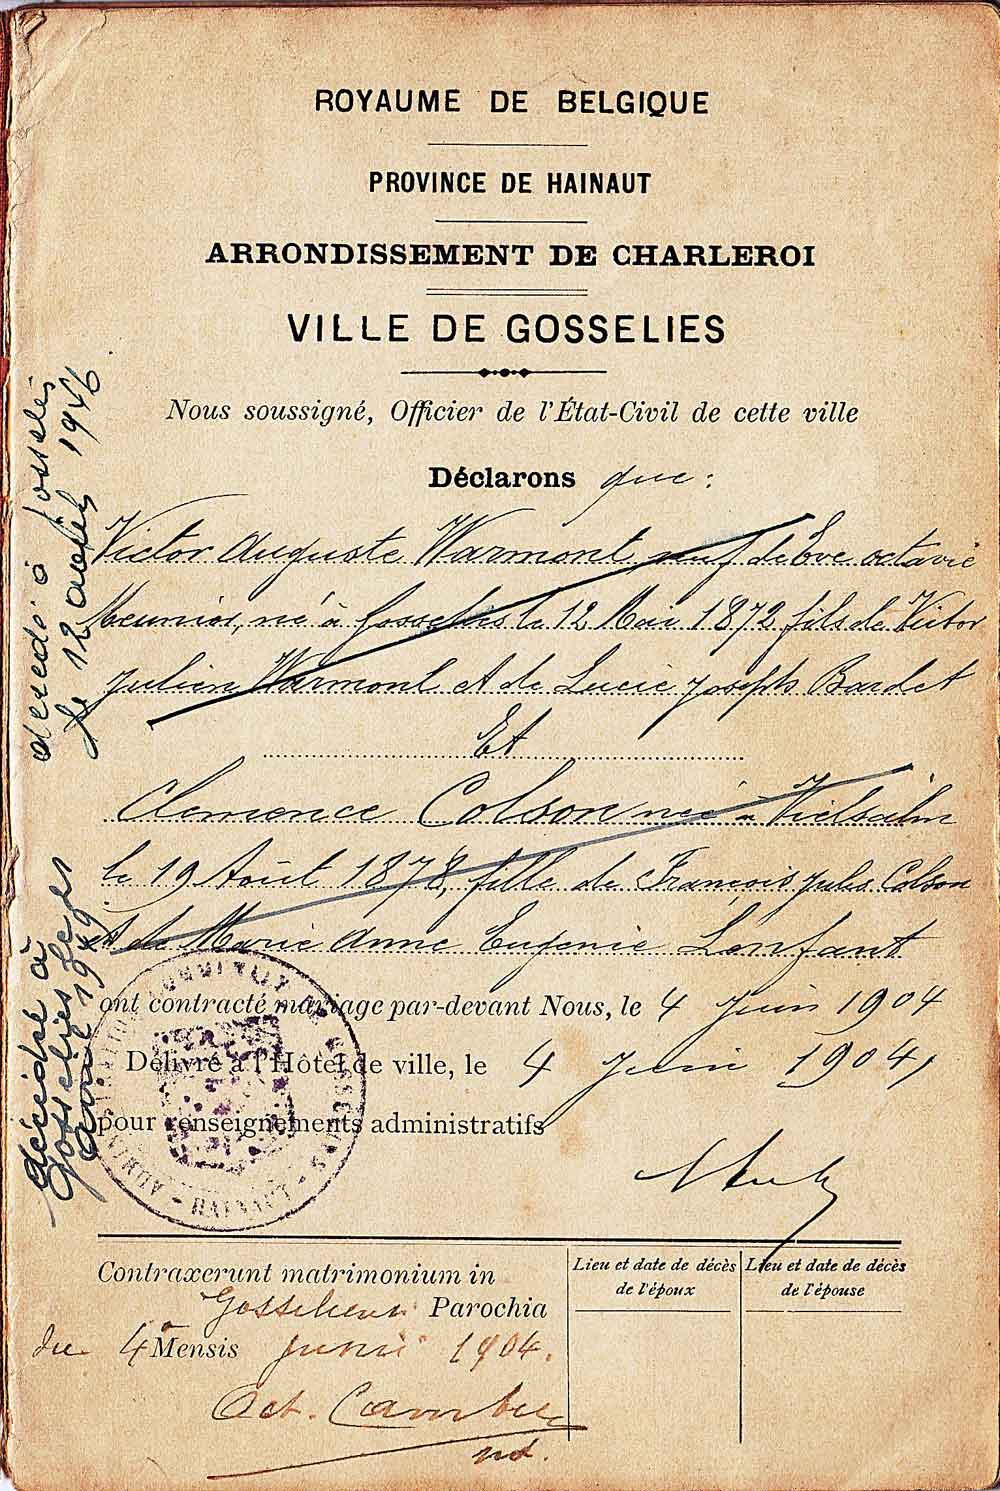 ROYAUME DE BELGIQUE
PROVINCE DE HAINAUT
ARRONDISSEMENT DE CHARLEROI
VILLE DE GOSSELIES
Nous soussigné, Officier de l'État-Civil de cette ville
Déclarons que:
Victor Auguste Warmont veuf de Eve octavie
Meunier, né à Gosselies le 12 Mai 1872 fils de Victor
Julien Warmont et de Lucie Joseph Bardet
Et
Clemence Colson née à Vielsalm
le 19 Août 1878, fille de François Jules Colson
et de Marie Anne Eugenie Lenfant
ont contracté mariage par-devant Nous, le 4 Juin 1904
Délivré à l'Hôtel de ville, le 4 Juin 1904,
pour renseignements administratifs
décédé à Gosselies
le 12 1946
décédée à
Gosselies le
avril 1949
HAINAUT
Contraxerunt matrimonium in
Parochia
die 4a Mensis junii 1904.
Oct.
Lieu et date de décès
de l'époux
Lieu et date de décès
de l'épouse